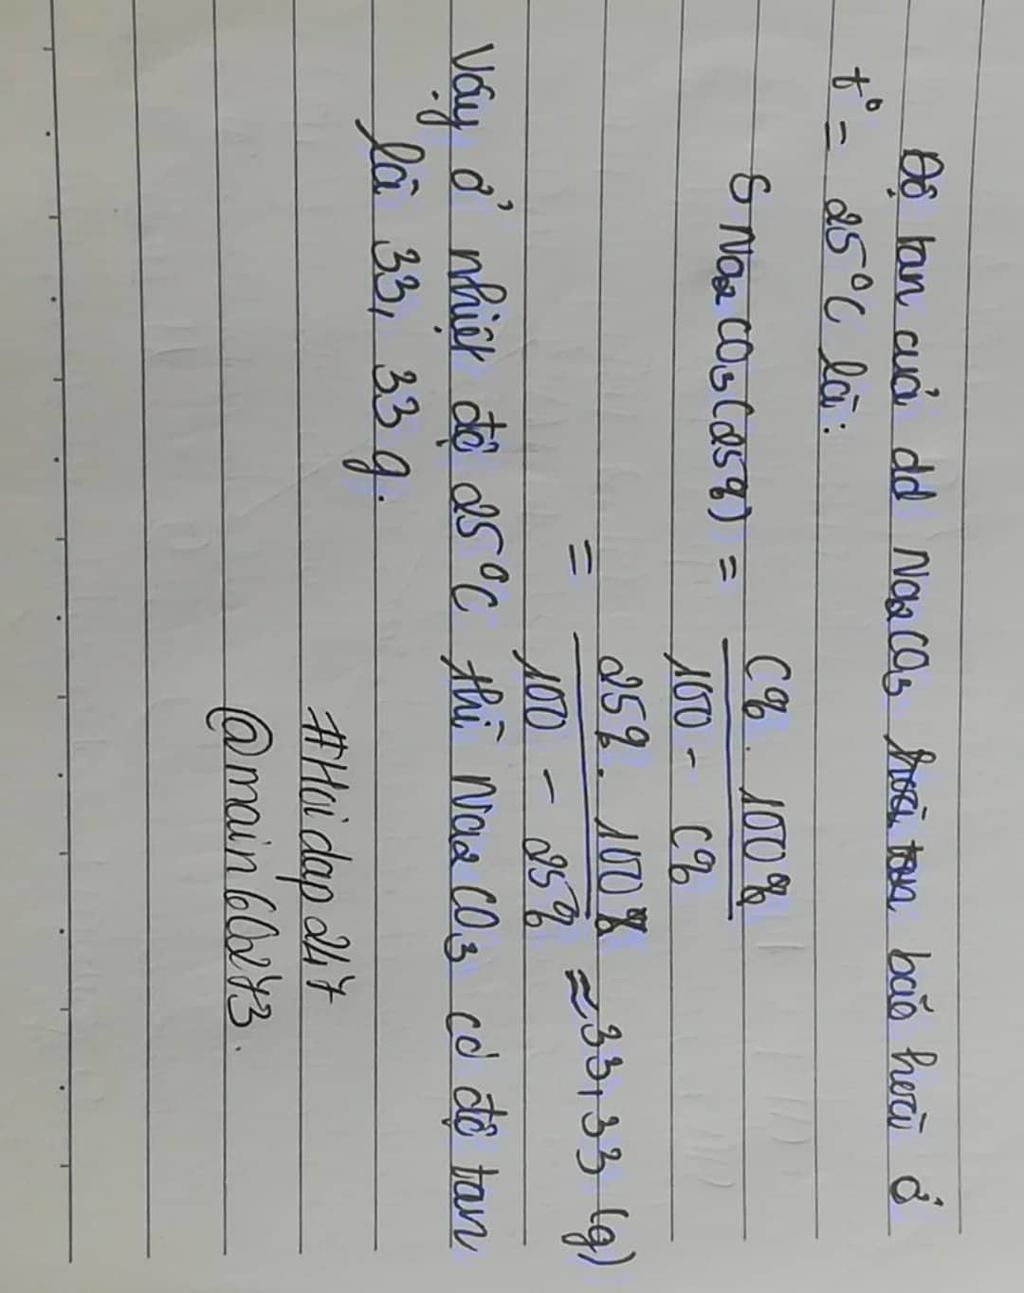 Độ tan của dd Na2CO3 bão hoà ở
t° = 25°C là:
S Na2CO3(25%) = C%. 100% / 100 - C%
= 25%. 100% / 100 - 25% ≈ 33,33 (g)
Vậy ở nhiệt độ 25°C thì Na2CO3 có độ tan
là 33,33g.
#Hoidap247
@main60273.